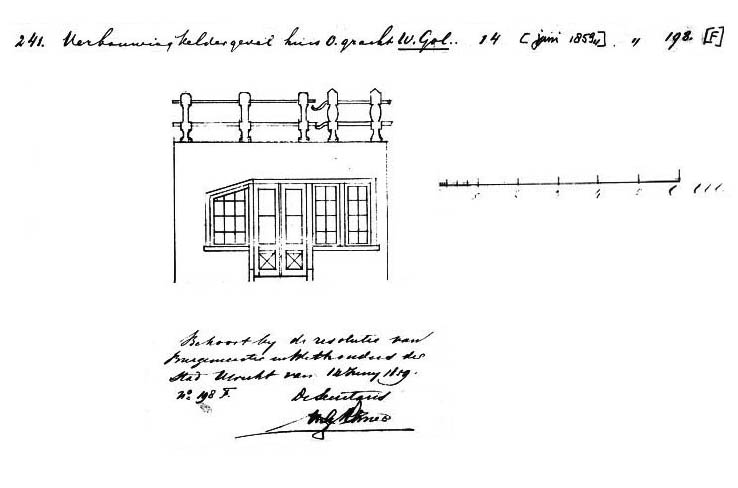 241. Verbouwing keldergevel huis O. gracht W. Gol.. 14 [juni 1859] „ 198. [F]
Behoort by de resolutie van
Burgemeester en Wethouders der
Stad Utrecht van 14 Juny 1859.
No. 198 F. De Secretaris